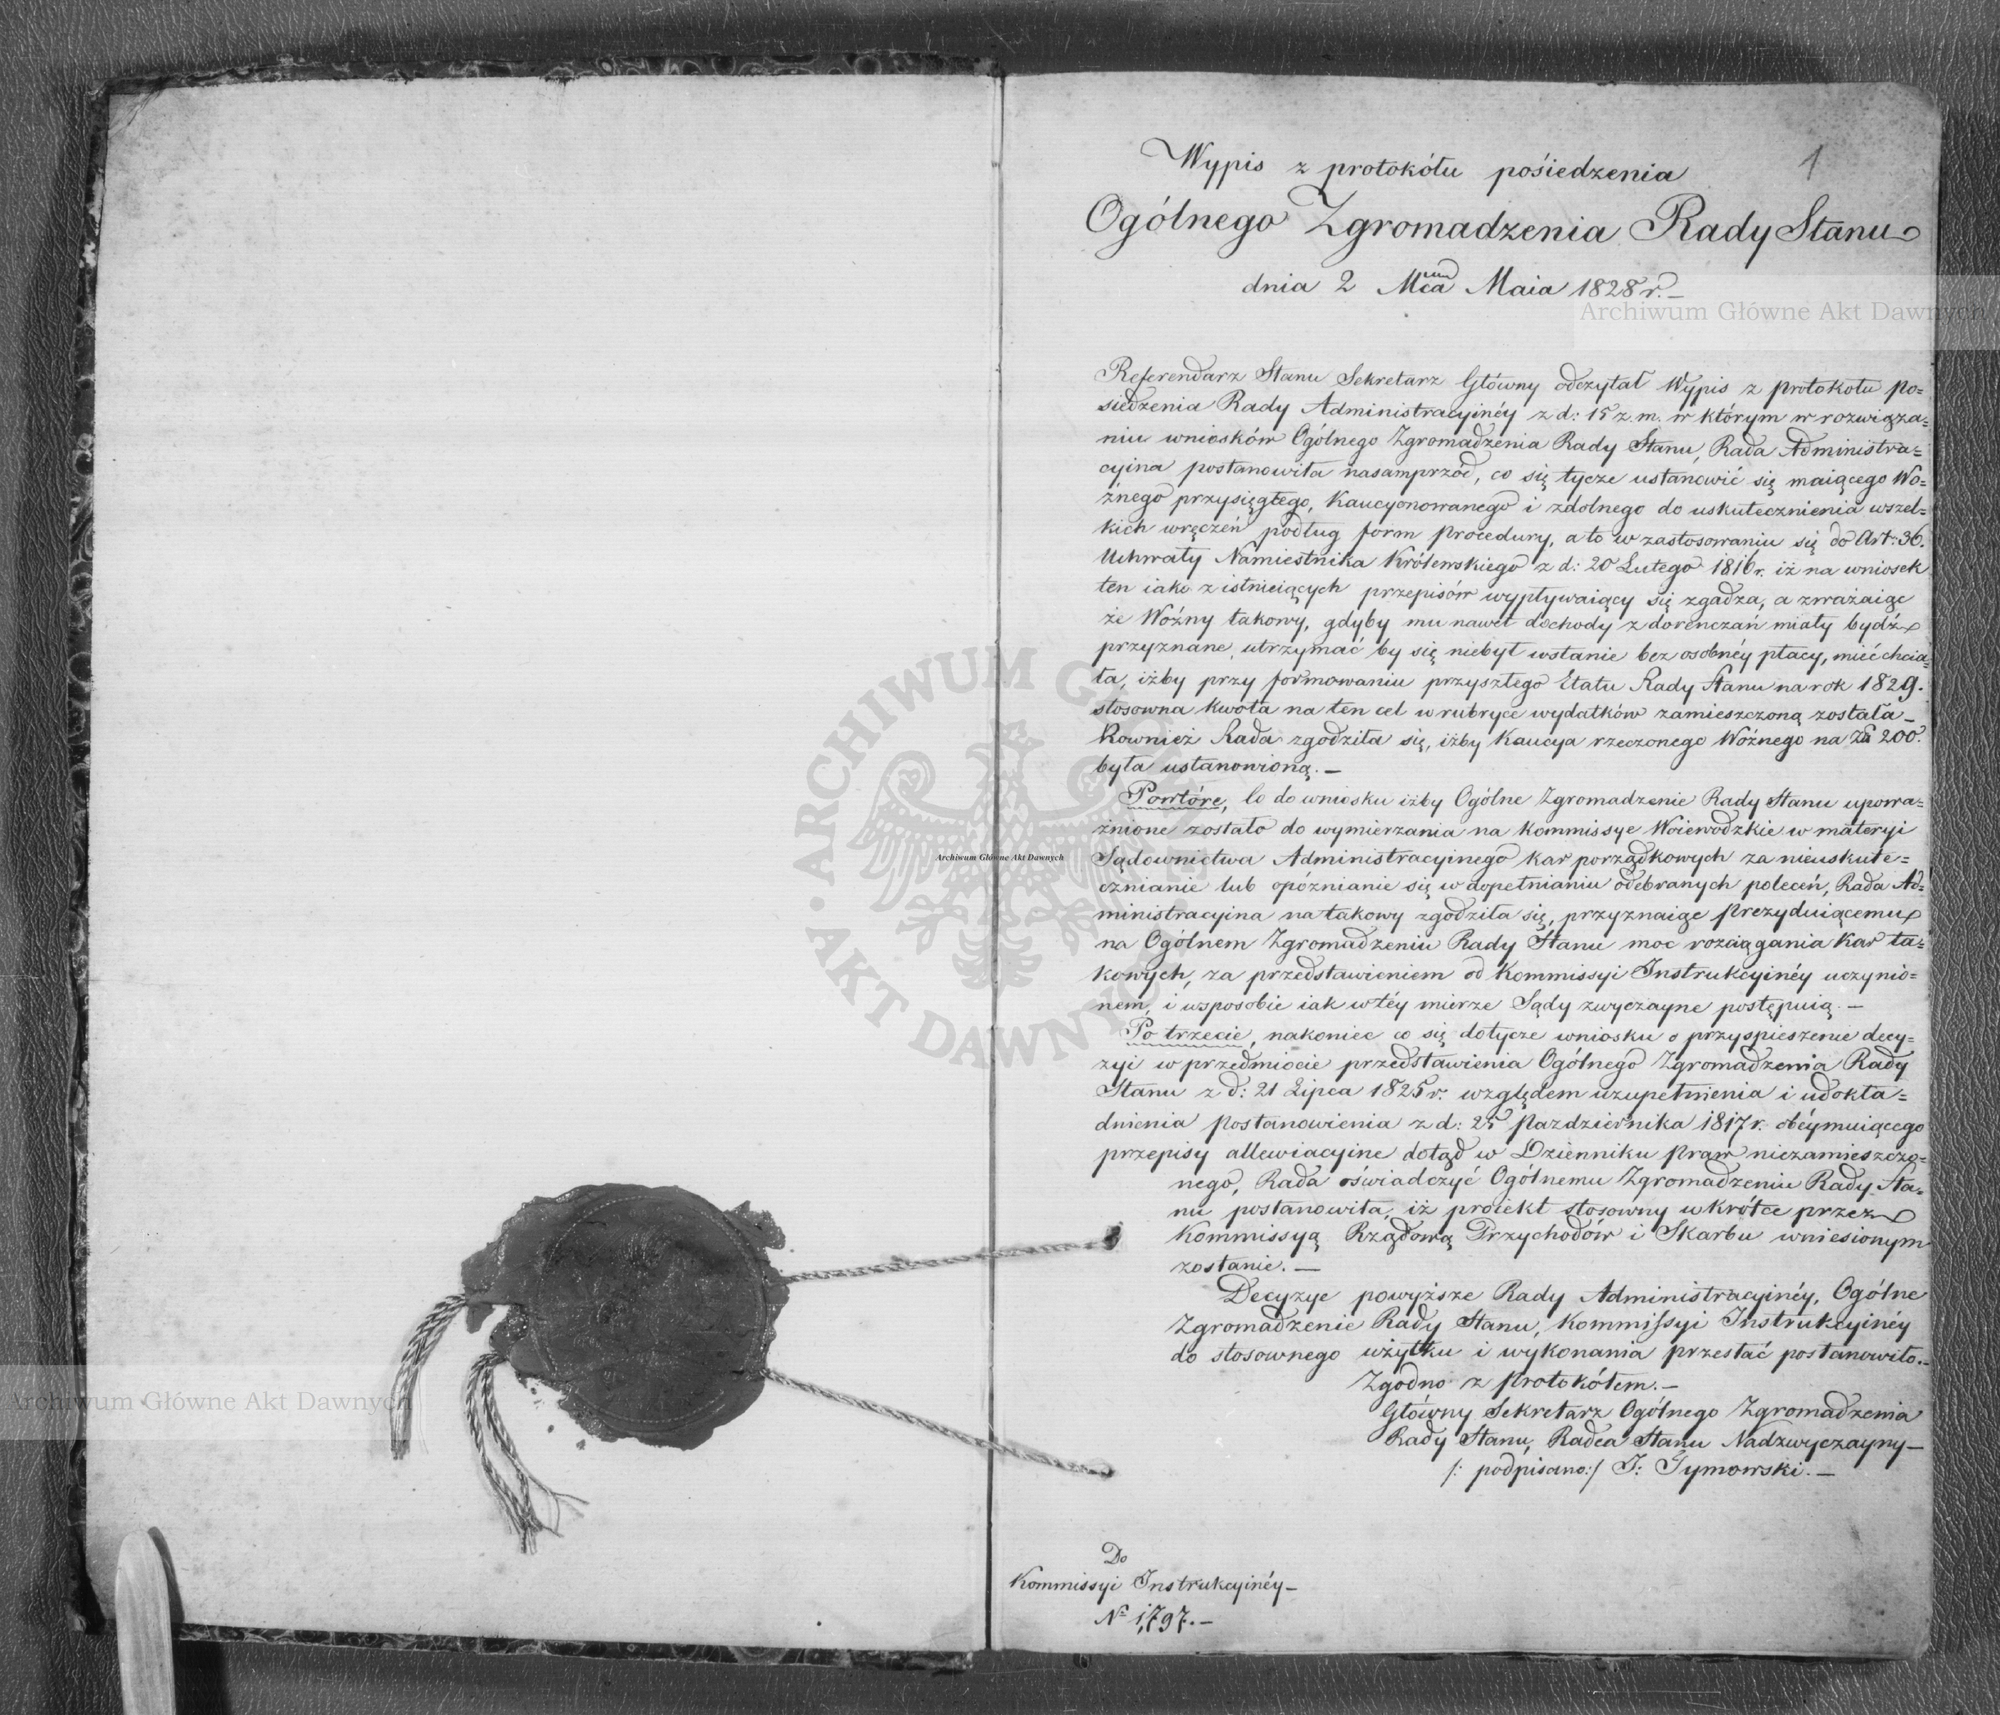 1
Wypis z protokółu pośiedzenia
Ogólnego Zgromadzenia Rady Stanu
dnia 2 Mca Maia 1828 r.—
Archiwum Główne Akt Dawnych
Referendarz Stanu Sekretarz Główny odczytał Wypis z protokołu po=
siedzenia Rady Administracyinéy z d: 15 z. m. w którym w rozwiąza=
niu wniosków Ogólnego Zgromadzenia Rady Stanu, Rada Administra=
cyina postanowiła nasamprzód, co się tycze ustanowić się maiącego Wo=
źnego przysięgłego, Kaucyonowanego i zdolnego do uskutecznienia wszel=
kich wręczeń podług form procedury, a to w zastosowaniu się do Art: 36.
Uchwały Namiestnika Królewskiego z d: 20 Lutego 1816 r. iż na wniosek
ten iako z istnieiących przepisów wypływaiący się zgadza, a zważaiąc
że Woźny takowy, gdyby mu nawet dochody z doręnczań miały bydź
przyznane, utrzymać by się niebył wstanie bez osobnéy płacy, mieć chcia=
ła, iżby przy formowaniu przyszłego Etatu Rady Stanu na rok 1829.
stosowna kwota na ten cel w rubryce wydatków zamieszczoną została—
Rownież Rada zgodziła się, iżby Kaucya rzeczonego Woźnego na Zł 200.
była ustanowioną.—
Powtóre, Co do wniosku iżby Ogólne Zgromadzenie Rady Stanu upowa=
żnione zostało do wymierzania na Kommissye Woiewodzkie w materyi
Sądownictwa Administracyinego kar porządkowych za nieuskute=
cznianie lub opóznianie się w dopełnianiu odebranych poleceń, Rada Ad=
ministracyina na takowy zgodziła się, przyznaiąc Prezyduiącemu
na Ogólnem Zgromadzeniu Rady Stanu moc rozciągania Kar ta=
kowych, za przedstawieniem od Kommissyi Instrukcyinéy uczynio=
nem, i wsposobie iak w téy mierze Sądy zwyczayne postępuią.—
Po trzecie, nakoniec co się dotycze wniosku o przyspieszenie decy=
zyi w przedmiocie przedstawienia Ogólnego Zgromadzenia Rady
Stanu z d: 21 Lipca 1825 r. względem uzupełnienia i udokła=
dnienia postanowienia z d: 25 Pazdziernika 1817 r. obéymuiącego
przepisy allewiacyine dotąd w Dzienniku Praw niezamieszczo=
nego, Rada oświadczyć Ogólnemu Zgromadzeniu Rady Sta=
nu postanowiła, iż proiekt stosowny wkrótce przez
Kommissyą Rządową Przychodów i Skarbu wniesionym
zostanie.—
Decyzye powyższe Rady Administracyinéy, Ogólne
Zgromadzenie Rady Stanu, Kommissyi Instrukcyinéy
do stosownego użytku i wykonania przesłać postanowiło.—
Zgodno z Protokółem.—
Główny Sekretarz Ogólnego Zgromadzenia
Rady Stanu, Radca Stanu Nadzwyczayny—
/: podpisano :/ J: Tymowski.—
Do
Kommissyi Instrukcyinéy—
No 1,797.—
ARCHIWUM GŁÓWNE AKT DAWNYCH
Archiwum Główne Akt Dawnych
Archiwum Główne Akt Dawnych